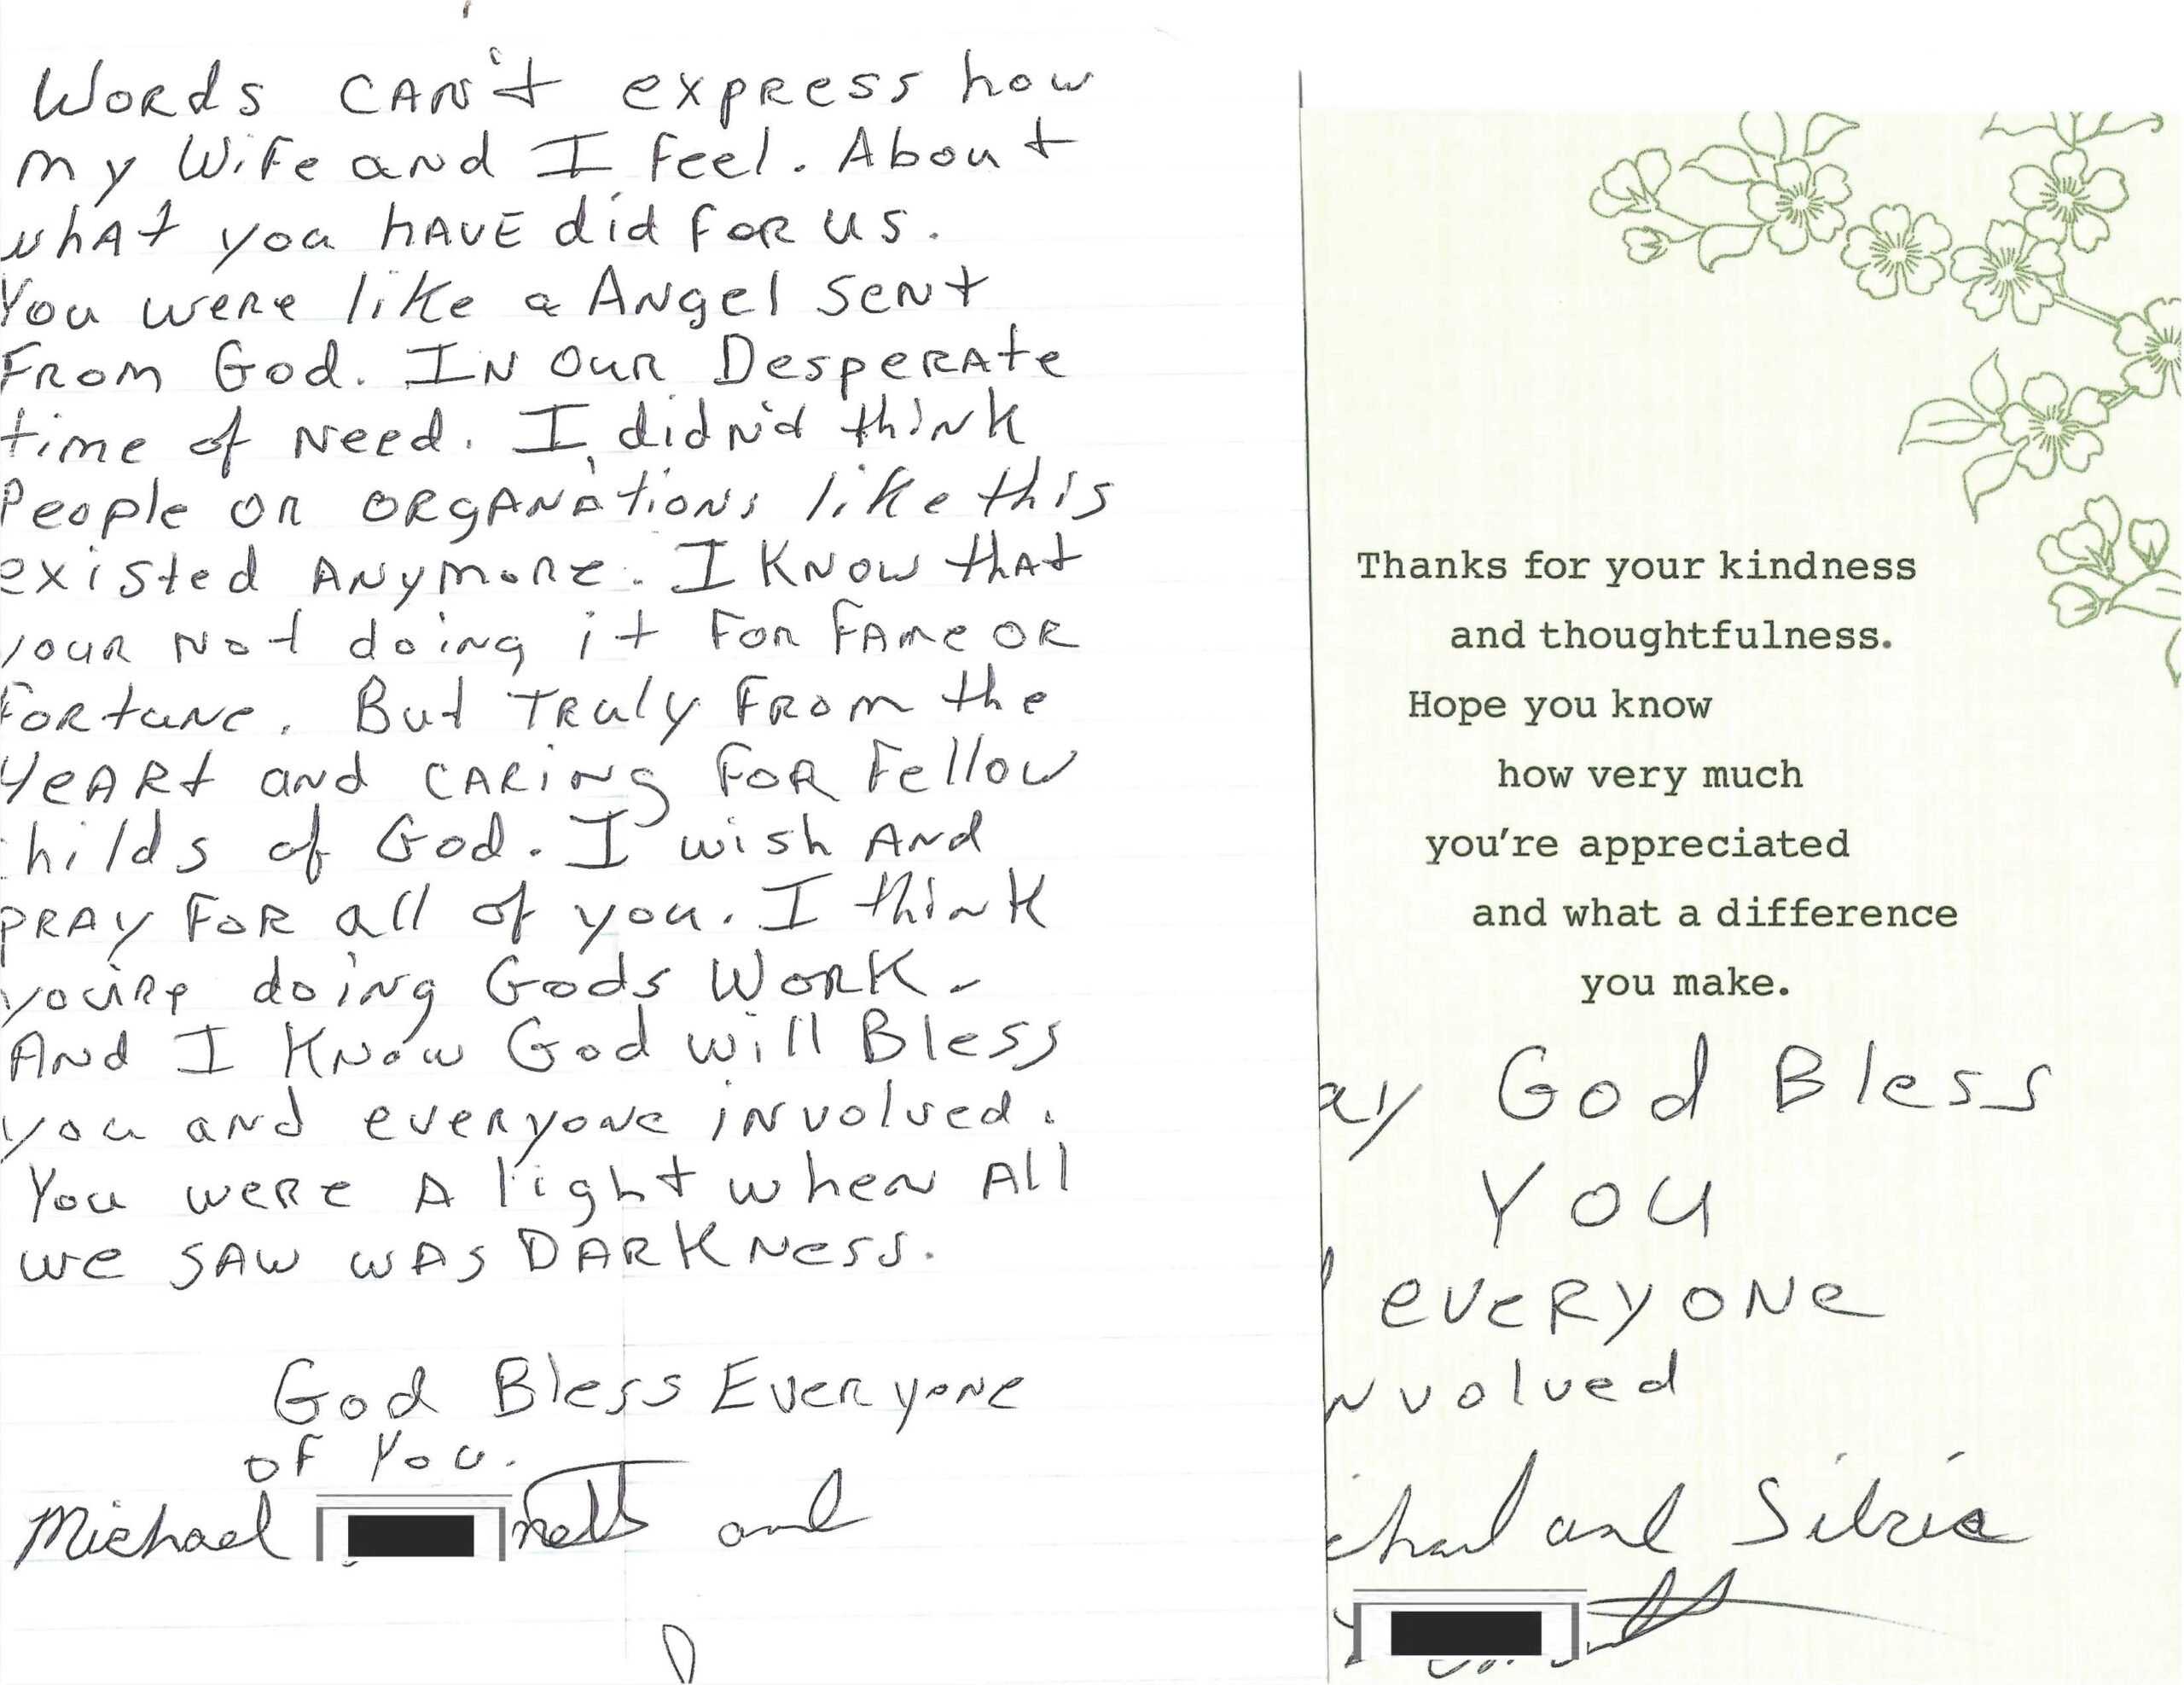 Words CAN't express how
my Wife and I feel. About
what you HAVE did for us.
You were like a Angel sent
From God. In our Desperate
time of Need. I didn't think
People or ORgANAtions like this
existed Anymore. I know that
your Not doing it for fame or
fortune. But Truly From the
HeARt and caring for Fellow
childs of God. I wish And
pray for all of you. I think
you're doing Gods Work.
And I Know God will Bless
you and everyone involved.
You were A light when All
we saw was DARKNess.
God Bless Everyone
of You.
Michael and
Thanks for your kindness
and thoughtfulness.
Hope you know
how very much
you're appreciated
and what a difference
you make.
ay God Bless
You
everyone
nvolved
chael and Silvia